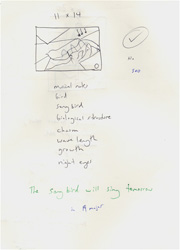 11. 2. 14
no
musical notes
bird
song bird
biological structure
charm
wave length
growth
night eyes
The song bird will sing tomorrow
in A major